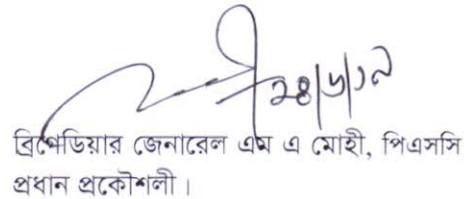 ২৪/৬/১৯
ব্রিগেডিয়ার জেনারেল এম এ মোহী, পিএসসি
প্রধান প্রকৌশলী।